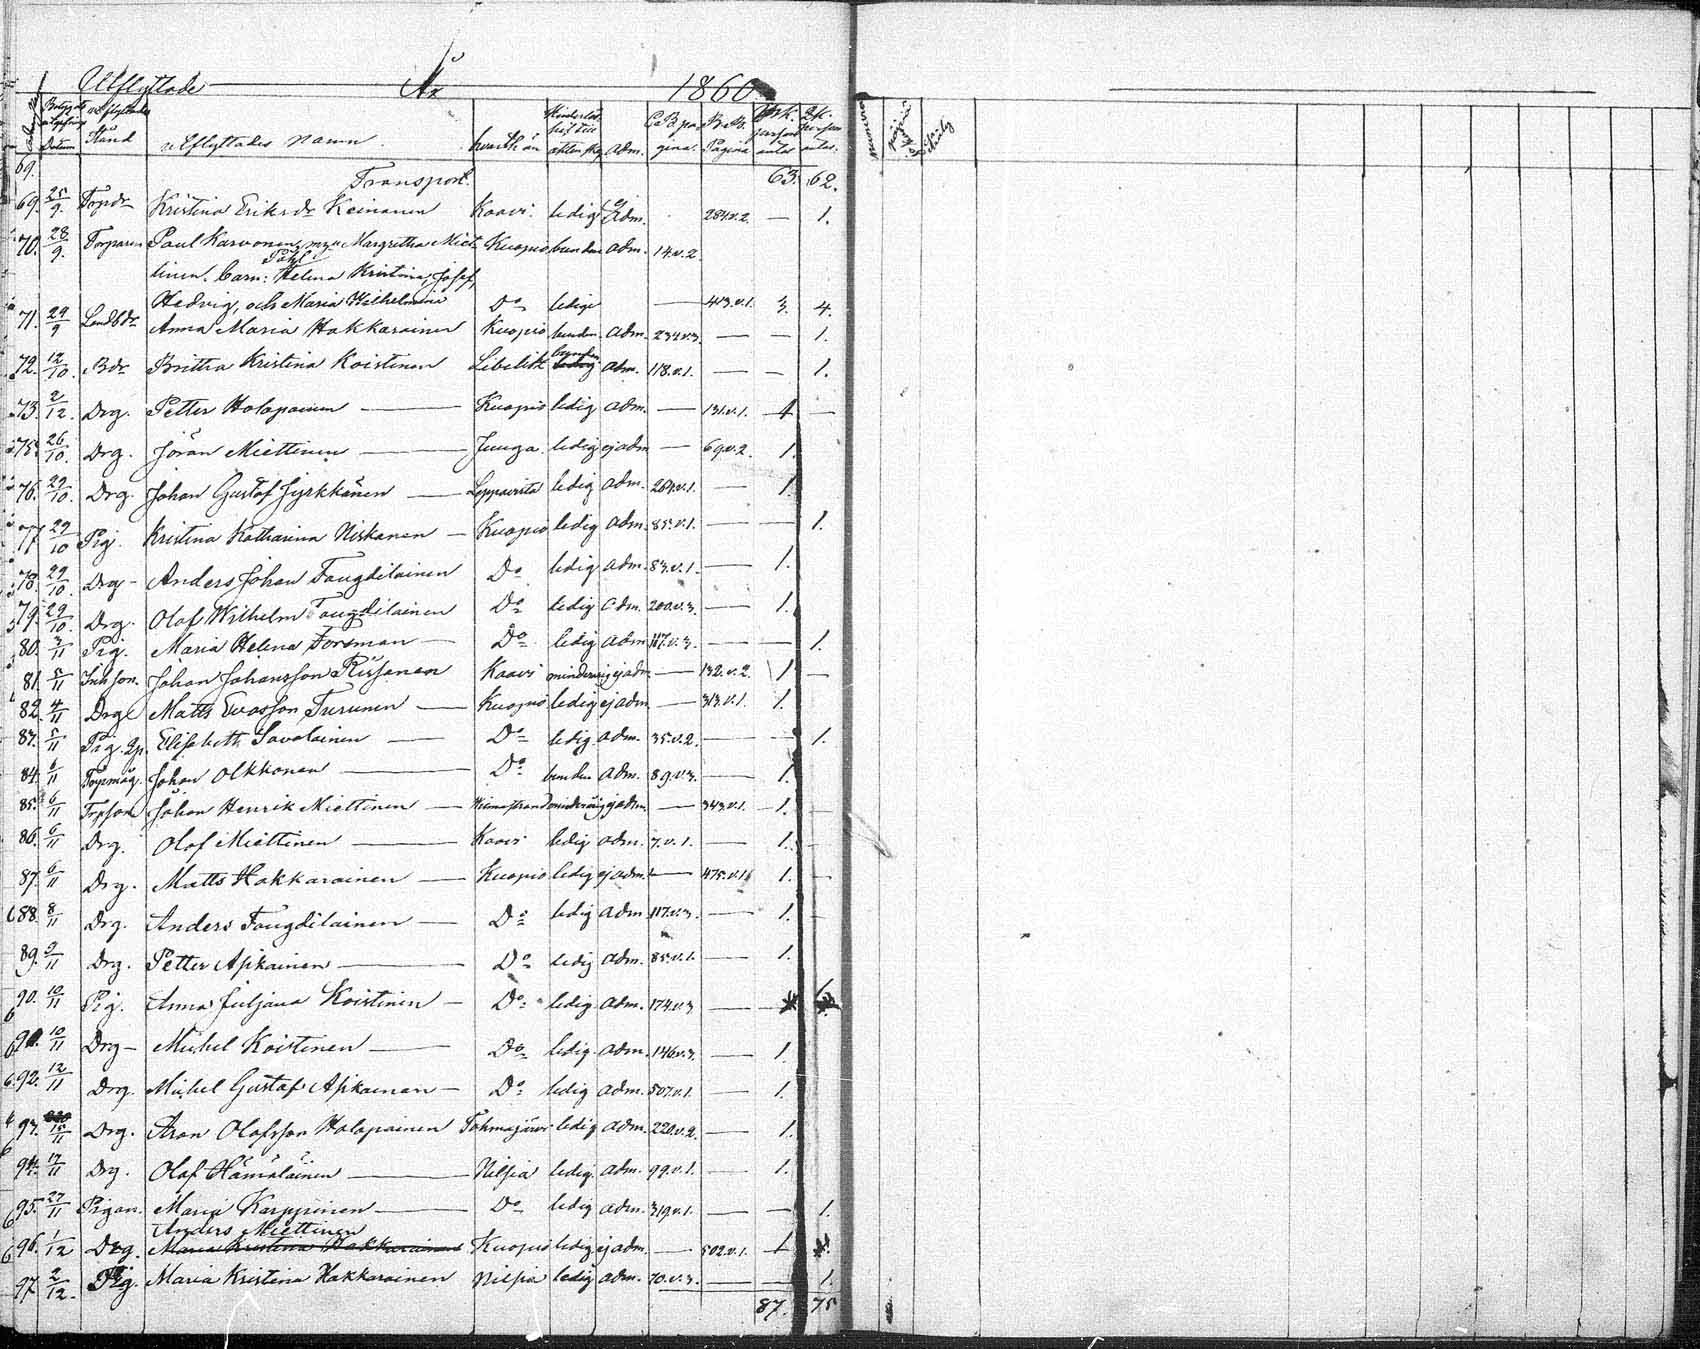 Utflyttade År 1860
Betygets utgifning Datum utflyttades Stånd utflyttades namn. hvarthän Hinderlöshet till äktenskap adm. C.B. pagina. B.B. Pagina M.K. personantal Q.K. personantal.
69. Transport. 63. 62.
69. 25/9. Torpdr Kristina Eriksdr Keinanen Kaavi. ledig ej adm. 284.v.2. — 1.
70. 28/9. Torparen Paul Karvonen, m. hu Margretha Miet- Kuopio bunden adm. 14.v.2.
Påhl
tinen. barn: Helena Kristina, Josef,
Hedvig, och Maria Wilhelmina Do ledige — 413.v.1. 3. 4.
71. 29/9 Landbdr Anna Maria Hakkarainen Kuopio bunden adm. 234.v.3. — — 1.
72. 12/10. Bdr Britta Kristina Koistinen Libelitz bunden adm. 118.v.1. — — 1.
73. 2/12. Drg. Petter Holopainen — Kuopio ledig adm. — 131.v.1. 1 —
75. 26/10. Drg. Jöran Miettinen — Juuga. ledig ej adm — 69.v.2. 1.
76. 29/10. Drg. Johan Gustaf Jyrkkänen — Leppävirta ledig adm. 264.v.1. — 1.
77. 29/10 Pig. Kristina Katharina Niskanen — Kuopio ledig adm. 85.v.1. — — 1.
78. 29/10. Drg — Anders Johan Fougdilainen Do ledig adm. 83.v.1. — 1.
79. 29/10. Drg. Olof Wilhelm Fougdilainen Do ledig adm. 200.v.3. — 1.
80. 3/11 Pig. Maria Helena Forsman — Do ledig adm. 117.v.3. — — 1.
81. 5/11 Inh son. Johan Johansson Rissanen Kaavi minderårig ej adm. — 132.v.2. 1 —
82. 4/11 Drg Matts Evasson Turunen — Kuopio ledig ej adm — 313.v.1. 1.
83. 5/11 Pig. Elisabeth Savolainen — Do ledig adm. 35.v.2. — — 1.
84. 6/11 Torpmåg. Johan Olkkonen — Do bunden adm. 89.v.3. — 1.
85. 6/11 Torpson Johan Henrik Miettinen — minderårig ej adm. — 343.v.1. — 1. —
86. 6/11 Drg. Olof Miettinen — Kaavi ledig adm. 7.v.1. — 1.
87. 6/11 Drg. Matts Hakkarainen — Kuopio ledig ej adm. — 475.v.1. 1. —
88. 8/11 Drg. Anders Fougdilainen — Do ledig adm. 117.v.3. — 1. —
89. 9/11 Drg. Petter Asikainen — Do ledig adm. 85.v.1. — 1.
90. 10/11 Pig. Anna Juljana Koistinen — Do ledig adm. 174.v.3 — — 1.
91. 10/11 Drg — Mickel Koistinen — Do ledig adm. 146.v.3. — 1.
92. 12/11 Drg. Mickel Gustaf Asikainen — Do ledig adm. 507.v.1. — 1.
93. 15/11 Drg. Aron Olofsson Holopainen Tohmajärvi ledig adm. 220.v.2. — 1.
94. 17/11 Drg. Olof Hämäläinen — Nilsiä ledig. adm. 99.v.1. — 1.
95. 27/11 Pigan. Maria Karppinen — Do ledig adm. 319.v.1. — — 1.
Anders Miettinen
96. 1/12 Drg. Maria Kristina Hakkarainen Kuopio ledig ej adm. — 502.v.1. 1
97. 2/12. Pig. Maria Kristina Hakkarainen Nilsiä ledig adm. 70.v.3. — — 1.
87. 75